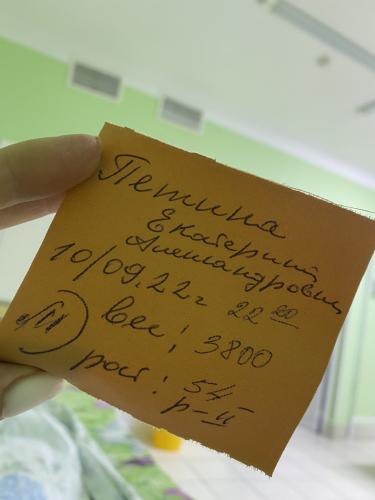 Петина
Екатерина
Александровна
10/09.22г 22 20
вес: 3800
рост: 54
р-II